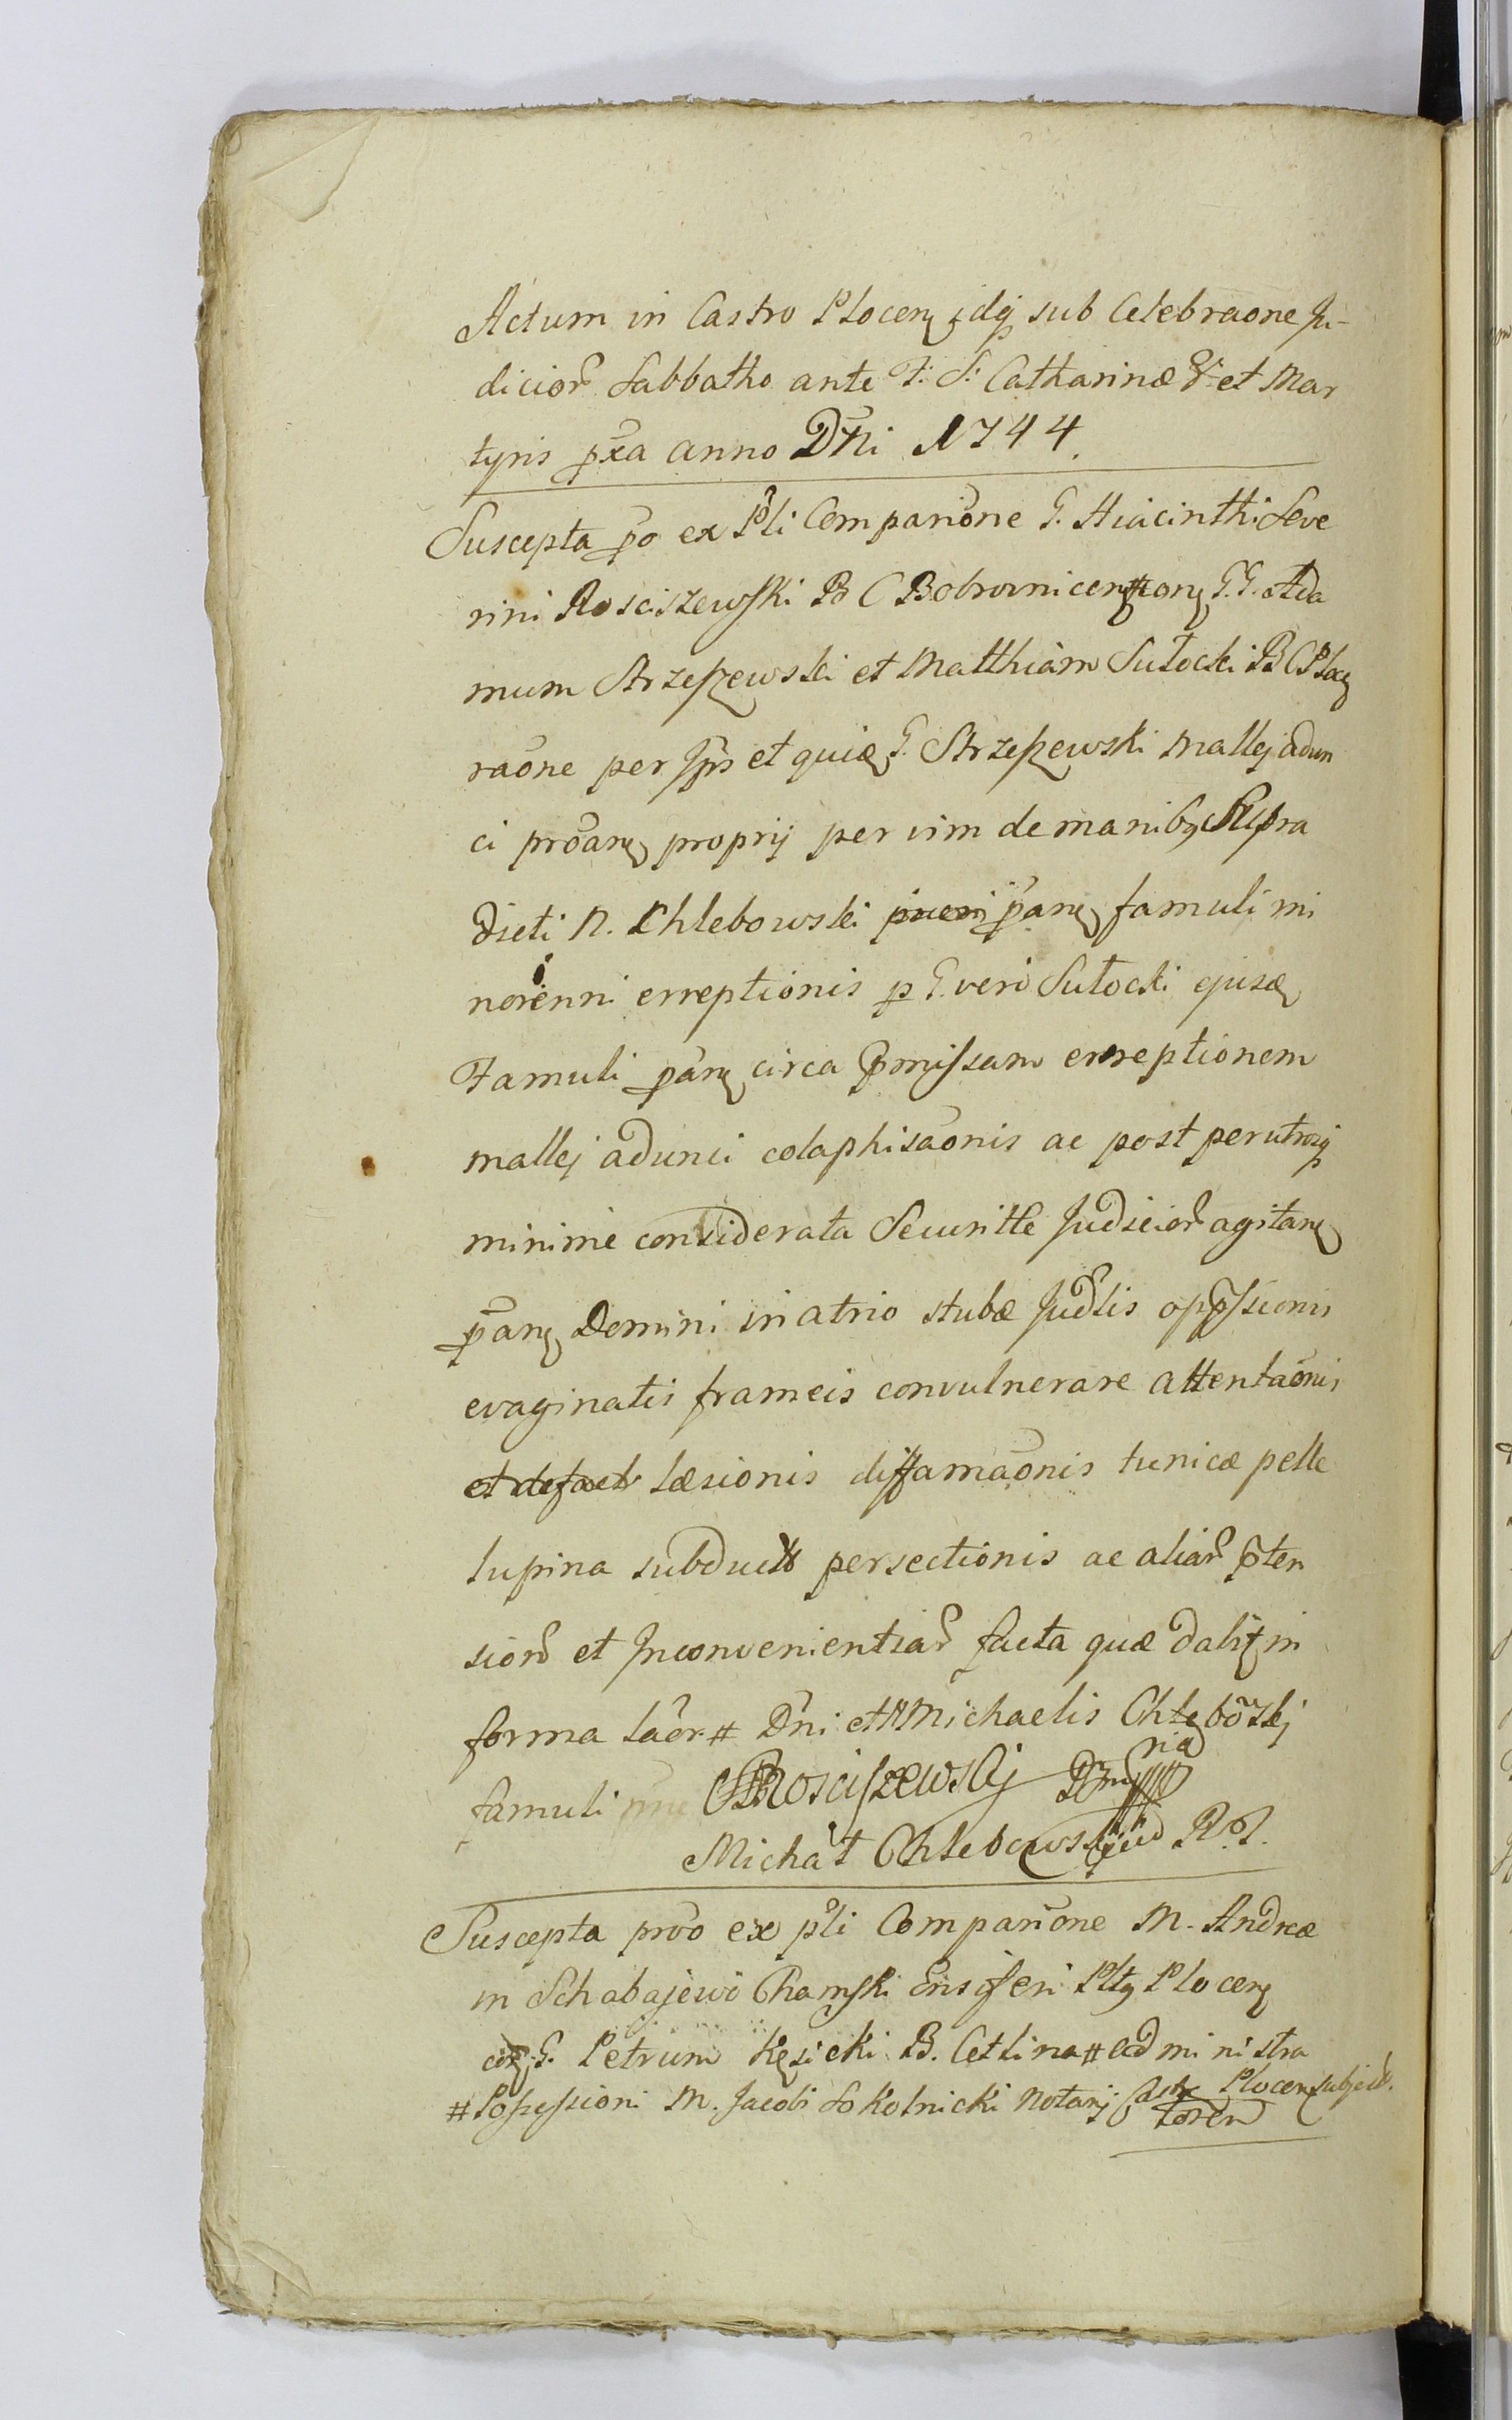 Actum in Castro Plocen idq sub Celebraone Ju-
dicior Sabbatho ante F: S: Catharinæ V. et Mar
tyris pxa anno Dñi 1744.
Suscepta põ ex Pli Comparione G. Hiacinthi Seve
rini Rosciszewski B C Bobrovnicen # con G.G. Ada
mum Strzeszewski et Matthiam Sutocki B C Ploc
raone per Jps et quidem G. Strzeszewski mallej adun
ci proan proprij per vim de manibq Supra
dicti N. Chlebowski pan famuli mi
norenni erreptionis p G. vero Sutocki ejusd
Famuli pan circa pmissam erreptionem
mallej adunci colaphisaonis ac post per utrosq
minime considerata Securitte Judicior agitan
pan Domini in atrio stubæ Judlis oppssionis
evaginatis frameis convulnerare attentaonis
et defact læsionis diffamaonis tunicæ pelle
lupina subduct persectionis ac aliar pten
sior et Inconvenientiar facta quæ dabit in
forma laor # Dñi et N Michaelis Chlebowskj
famuli Rosciszewskj
Michał Chlebowski
Suscepta proõ ex pli Comparione M. Andreæ
in Schabajewo Chamski Ensiferi Pltq Plocen
con G. Petrum Kęsicki B. Cetlina # administra
# Possessioni M. Jacobi Sokolnicki Notarj Castr Plocen subject.
toren